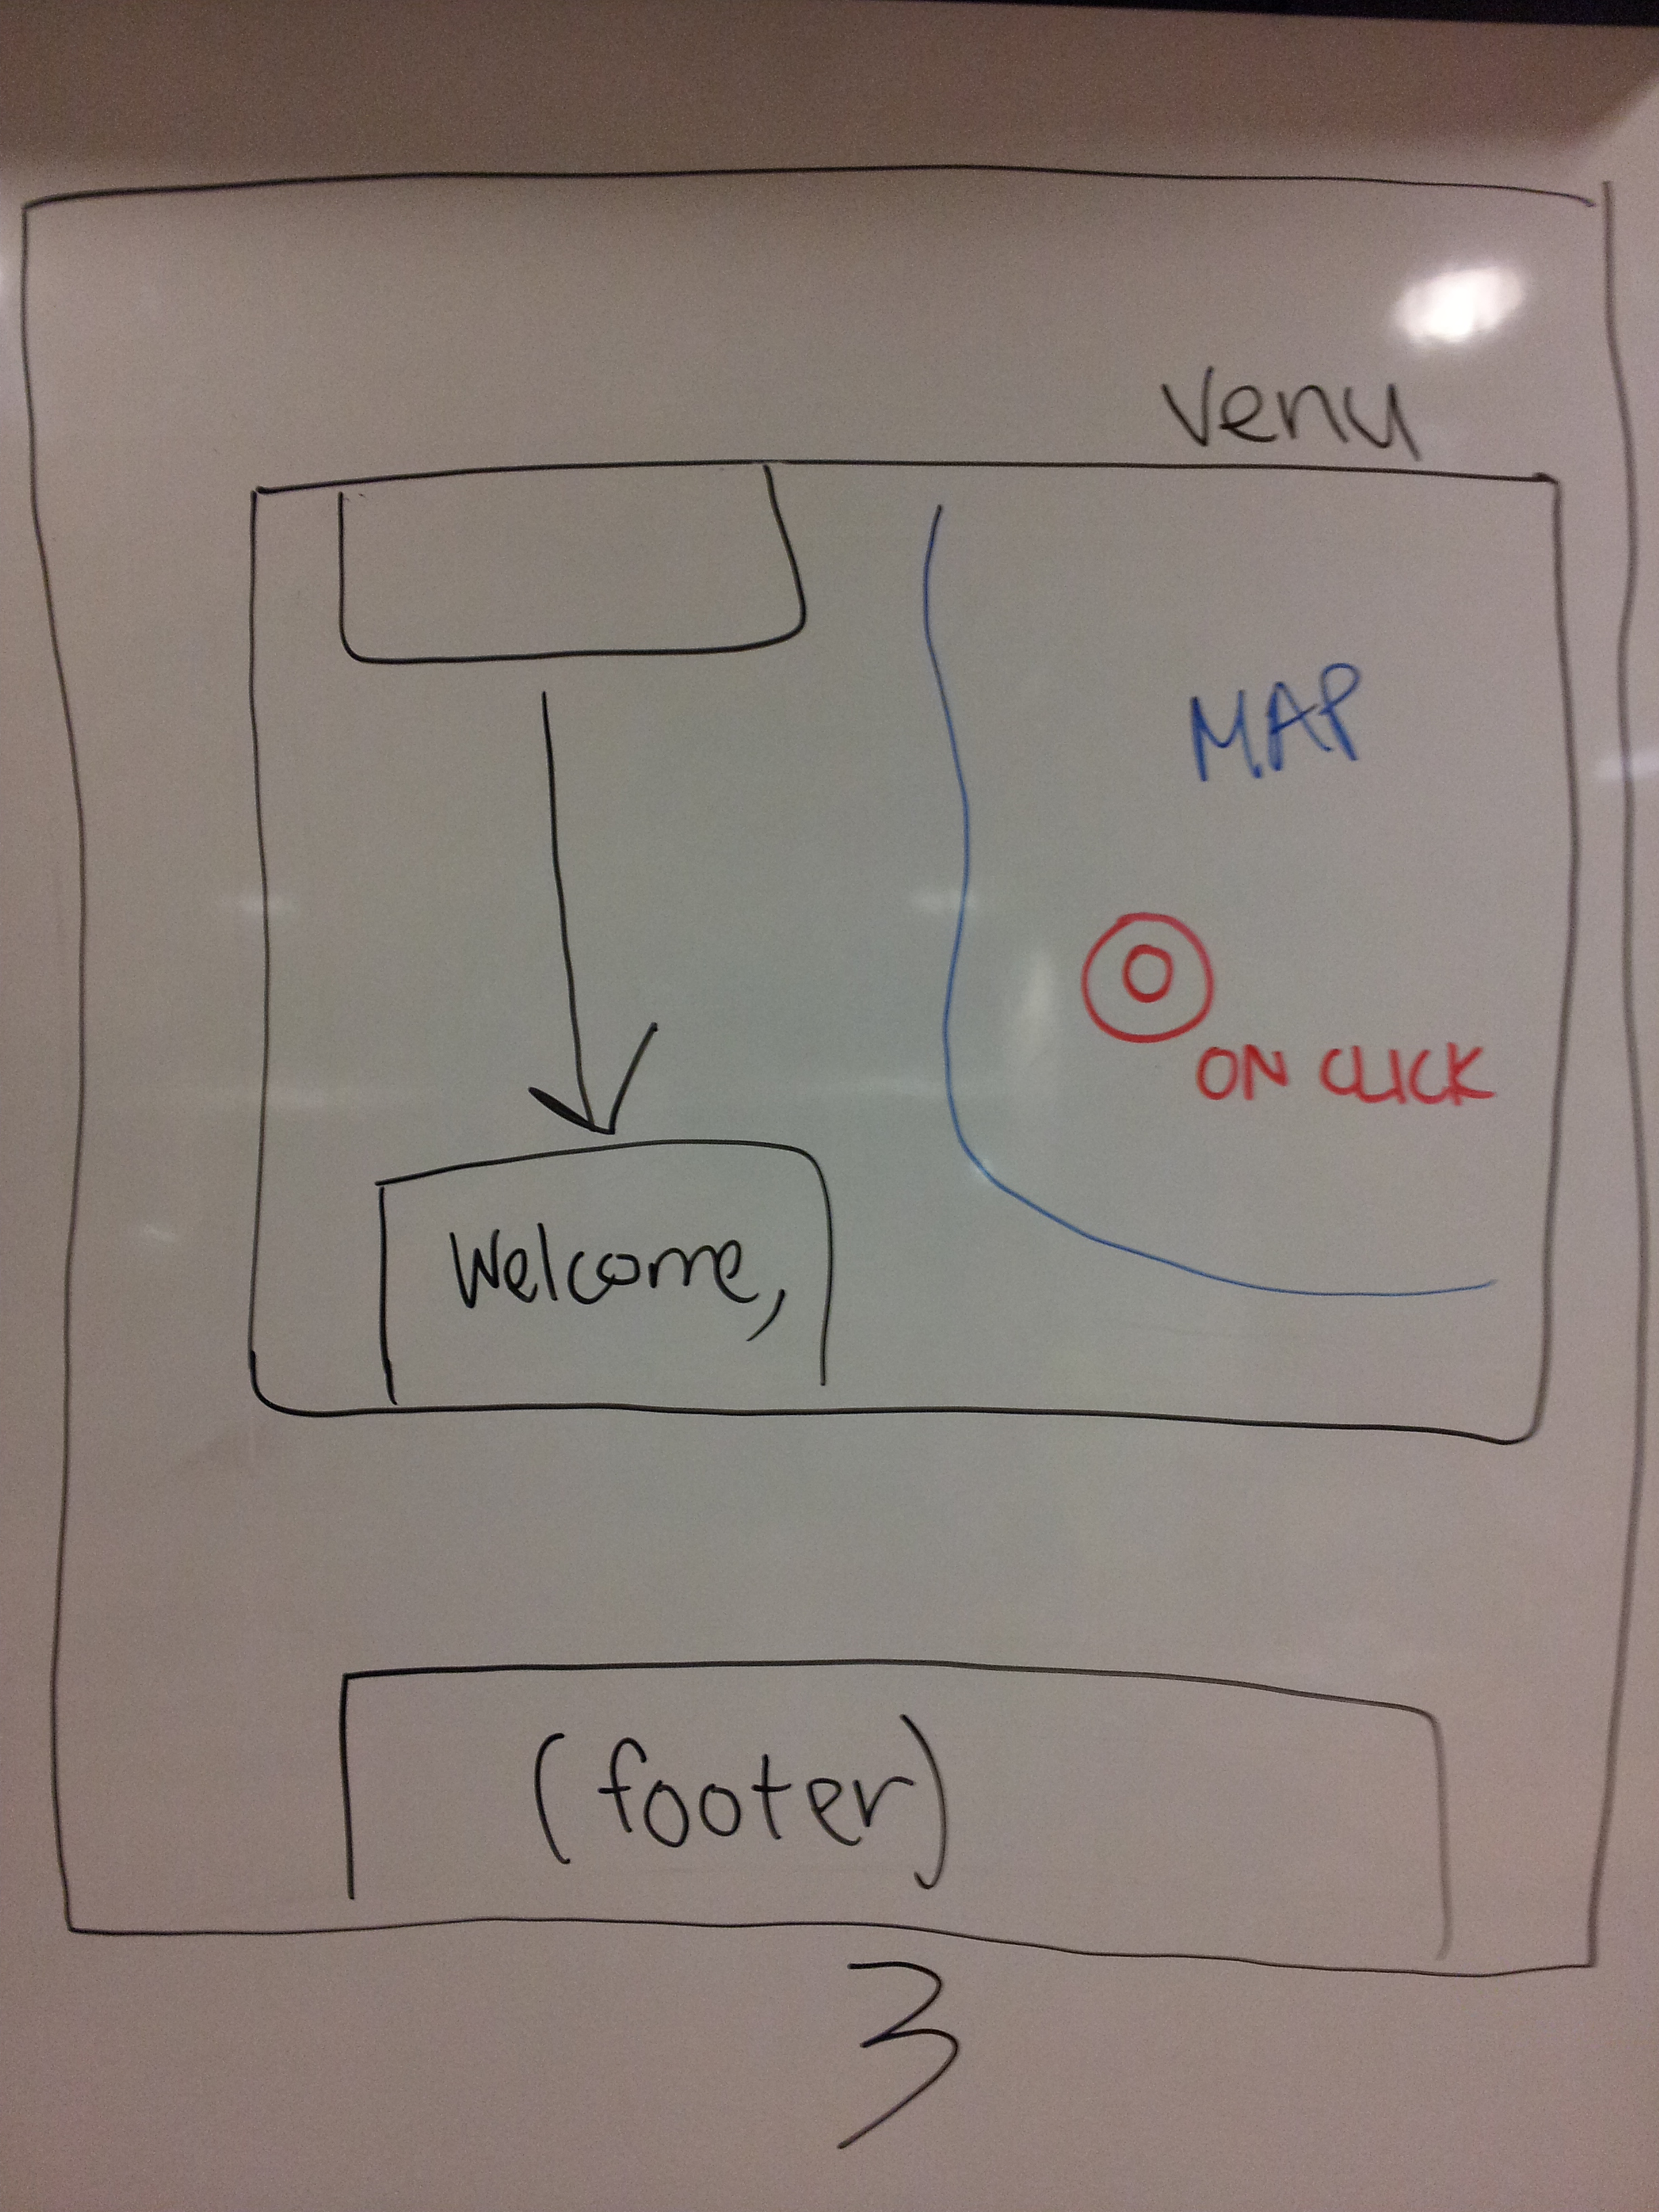 Venu
MAP
ON CLICK
Welcome,
(footer)
3